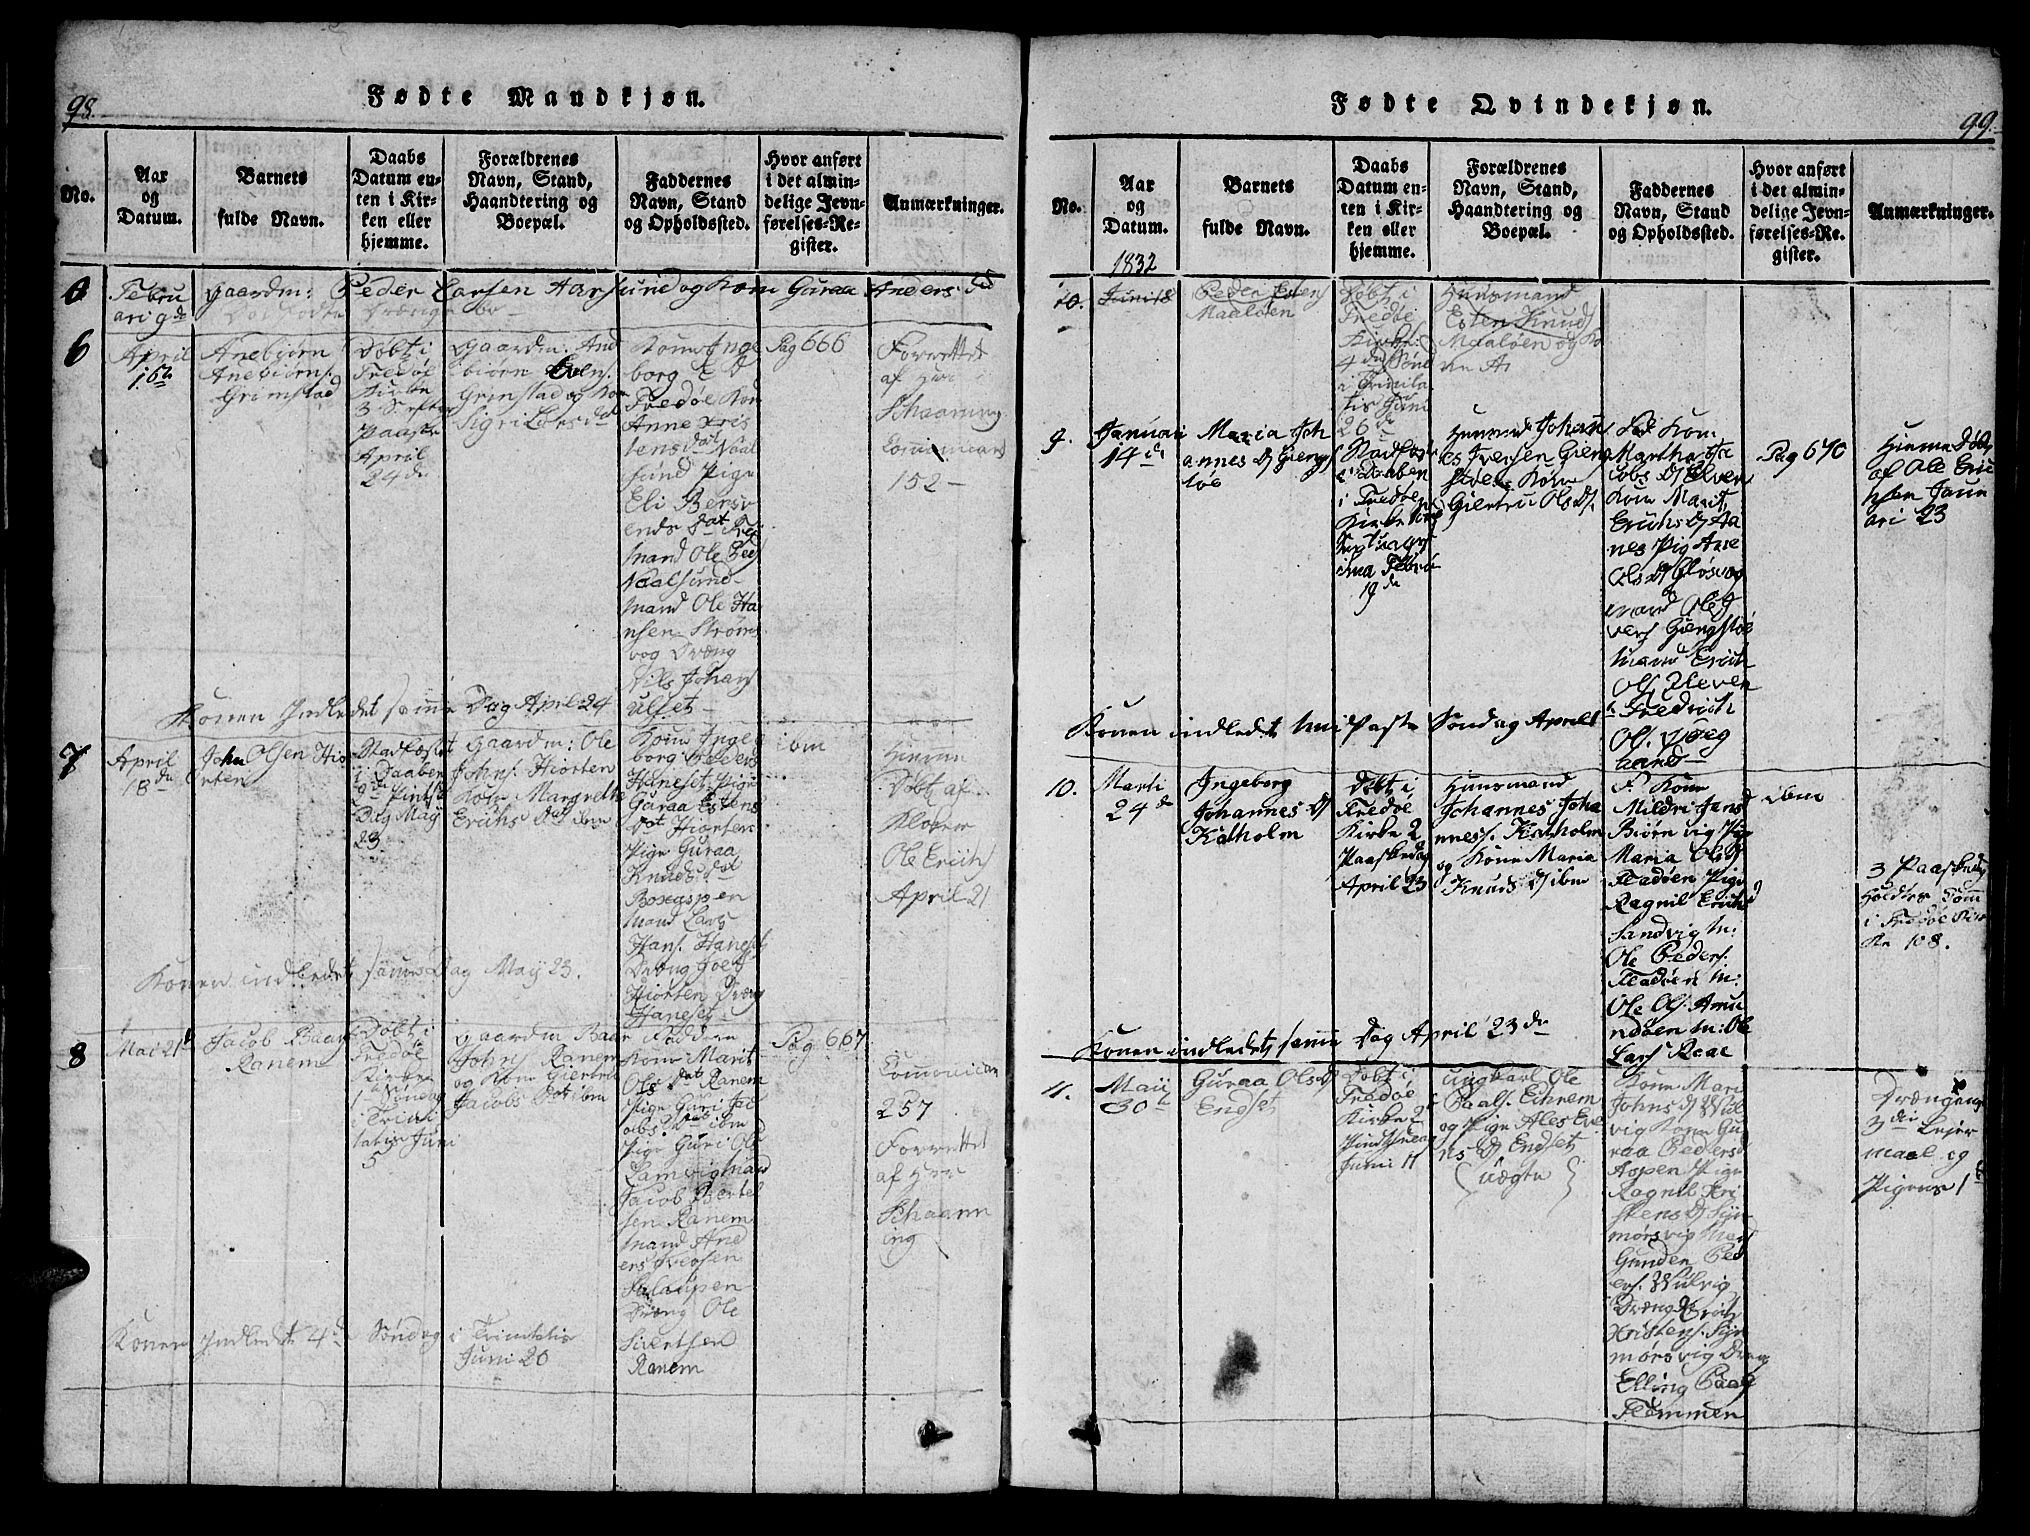 98.
Fødte Mandkjøn.
No.
Aar
og
Datum.
Barnets
fulde Navn.
Daabs
Datum en-
ten i Kir-
ken eller
hjemme.
Forældrenes
Navn, Stand,
Haandtering og
Boepæl.
Faddernes
Navn, Stand
og Opholdssted.
Hvor anført
i det almin-
delige Jevn-
førelses-Re-
gister.
Anmærkninger.
0
Febru
ari 9de
gaardm: Peder Larsen Aarsund og Kone Guraa Anders
6
April
16
Anebjørn
Anebiørns.
Grimstad
Døbt i
Fredøe
Kirke
3 S. efter
Paaske
April
24de
gaardm: And
biørn Evens.
Grimstad og Kone
Sigri Lars dat
Kone Inge
borg E D
Fredøe Kone
Anne Kris
tens dat Naal
sund Pige
Eli Bersv
ends dat
mand Ole
Naalsund
mand Ole Ha
nsen Strøms
vog Dræng
Nils Johan
ulset
Pag 666
Forrettet
af Her
Schaaning
Communicant
152
Konen Indledet samme Dag April 24
7
April
18de
John Olsen Hio
rten
Stadfæstet
i Daaben
2den Pintse
Dag Maij
23
gaardm: Ole
Johns. Hiorten
Kone Margrethe
Erichs Dat ibm
Kone Inge
borg Peders
Haneset Pige
Guraa Estens
Dat Hiorten
Pige Guraa
Knuds dat
Boxaspen
mand Lars
Hans. Haneset
Dræng Joen
Hiorten Dræng
Haneset
ibm
Hiemme
Døbt af
Klokker
Ole Erichs
April 21
Konen indledet samme Dag Maij 23.
8
Mai 21
Jacob Baars
Ranem
Døbt i
Fredøe
Kirke
1 Søndag
i Trini
tatis Juni
5
gaardm Baar
Johns Ranem
og Kone Giertru
Jacobs Dat ibm
Faddere
Kone Marit
Ols Dat Ranem
Pige Guri Jac
obs Dat ibm
Pige Guri Ols
Lamvig Mand
Jacob Bertel
sen Ranem
Mand And
ers Iversen
Salaspen
Dræng Ole
Sivertsen
Ranem
Pag 667
Communicant
257
Forrettet
af Her
Schaann
ing
Konen Indledet 4de Søndag i Trinitatis
Juni 20
99.
Fødte Qvindekjøn.
No.
Aar
og
Datum.
Barnets
fulde Navn.
Daabs
Datum en-
ten i Kir-
ken eller
hjemme.
Forældrenes
Navn, Stand,
Haandtering og
Boepæl.
Faddernes
Navn, Stand
og Opholdssted.
Hvor anført
i det almin-
delige Jevn-
førelses-Re-
gister.
Anmærkninger.
1832
10.
Juni 18
Peder Estens
Maaløen
Døbt i
Fredøe
Kirke
4de Sønd
i Trinita
tis Juni
26de
Huusmand
Esten Knuds
Maaløen og Ko
ne A
9.
Januari
14de
Maria Joh
annes D Gieng
støe
Stadfæste
i Daaben
i Fredøe
Kirke
Septuages
ima Febru
19de
Huusmd Johan
es Iversen Gieng
støe Kone
Giertru Ols D.
Fad Kone
Martha Ja
cobs D Elven
Kone Marit
Erichs D Aa
nes Pig Ane
Ols D Gløsvog
mand Ole I
vers Giengstøe
mand Erich
Ols Ueven
Fredrich
Ols. Vaag
land
Pag 670
Hiemme Døbt
af Ole Eric
hsen Janu
ari 23
Konen indledet 1 Paaske Søndag April
10.
Marti
24de
Ingeborg
Johannes D
Katholm
Døbt i
Fredøe
Kirke 2
Paaskedag
April 23
Huusmand
Johannes Joha
nnes. Katholm
og Kone Maria
Knuds D ibm
F. Kone
Mildri Jans D
Biørnvig Pige
Maria Ols D
Fladøen Pige
Ragnil Erichs D
Sandvig M:
Ole Peders.
Fladøen m:
Ole Ols. Amu
ndøen m: Ole
Lars Raae
ibm
3 Paaskedag
Holdtes Com
i Fredøe Kir
ke 108.
Konen indledet samme Dag April 23de
11.
Maij
30
Guraa Ols D
Endset
Døbt i
Fredøe
Kirke 2
Pindtsedag
Juni 11
Ungkarl Ole
Paals. Echrem
og Pige Ales Eve
ns D Endset
(uægte)
Kone Mari
Johns D Wul
vig Kone Gu
raa Peders
Aspen Pige
Ragnil Kri
stens D Sijn
mørsvig Mand
Gunden Ped
ers. Wulvig
Dræng Erich
Kristens. Sijn
mørsvig Dræng
Elling Paals
Flemmen
Drængens
3die Lejer
maal og
Pigens 1te